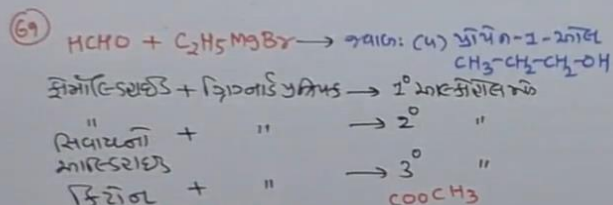 69 HCHO + C2H5MgBr → જવાબ: (4) પ્રોપેન-1-ઓલ
CH3-CH2-CH2-OH
ફોર્માલ્ડિહાઈડ + ગ્રિગ્નાર્ડ પ્રક્રિયક → 1° આલ્કોહોલ
" સિવાયનો + " → 2° "
આલ્ડિહાઈડ
કિટોન + " → 3° "
COOCH3